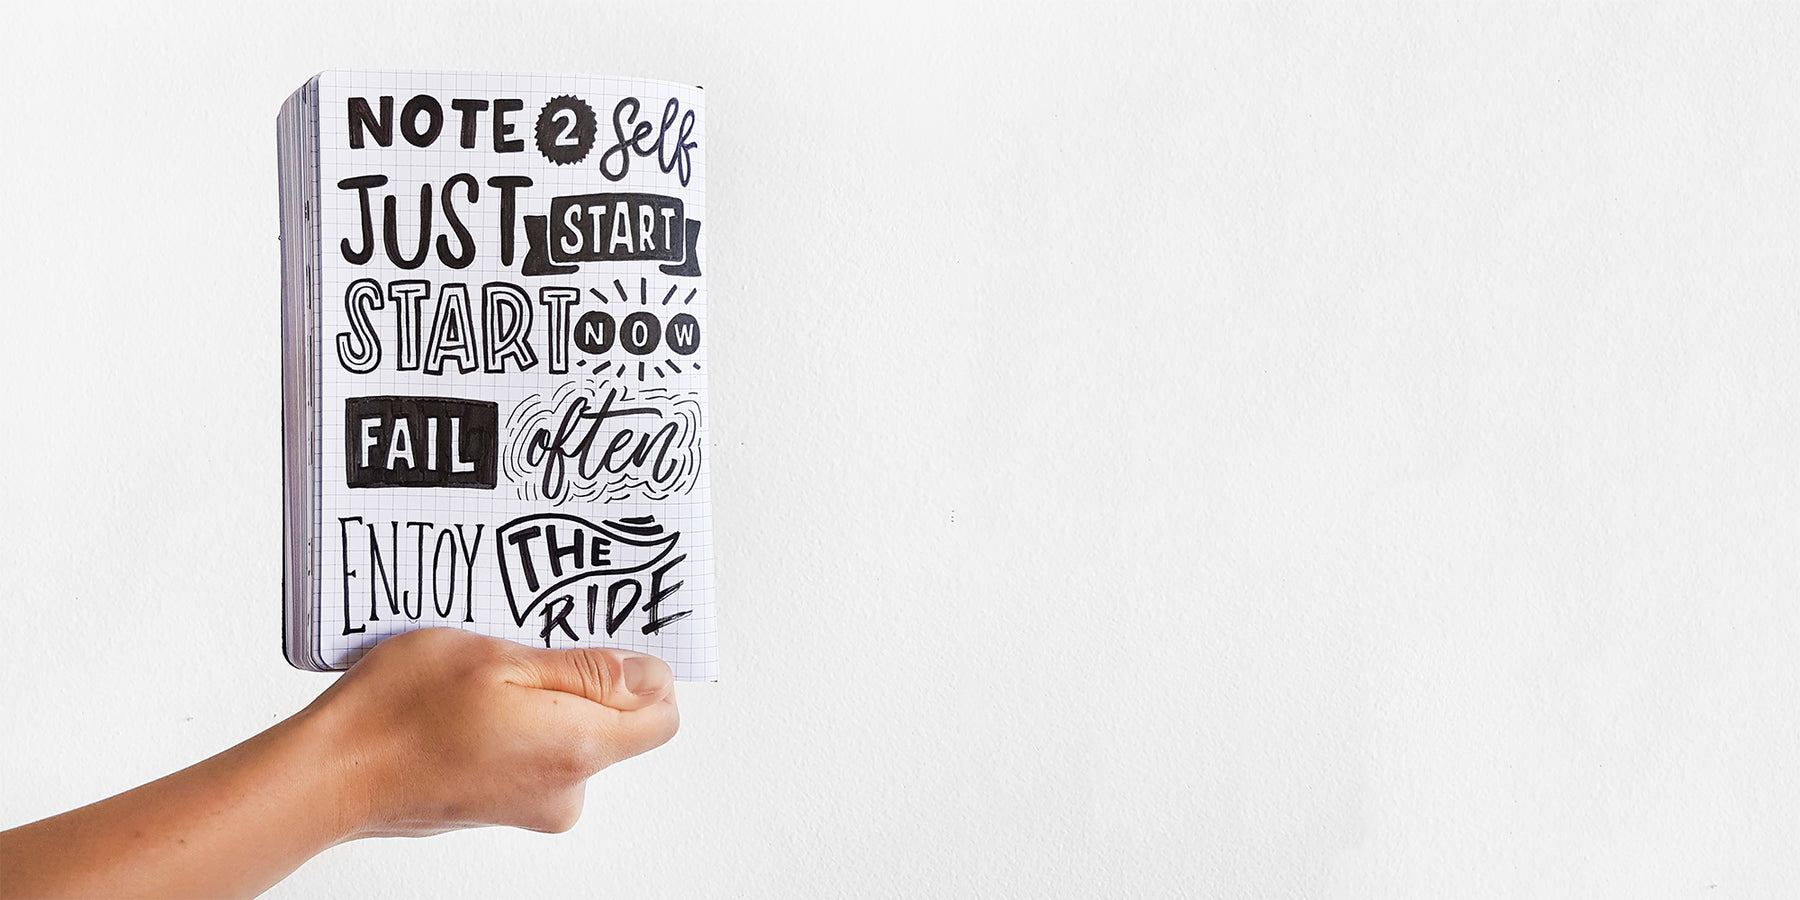 NOTE 2 Self
JUST START
START NOW
FAIL often
ENJOY THE
RIDE